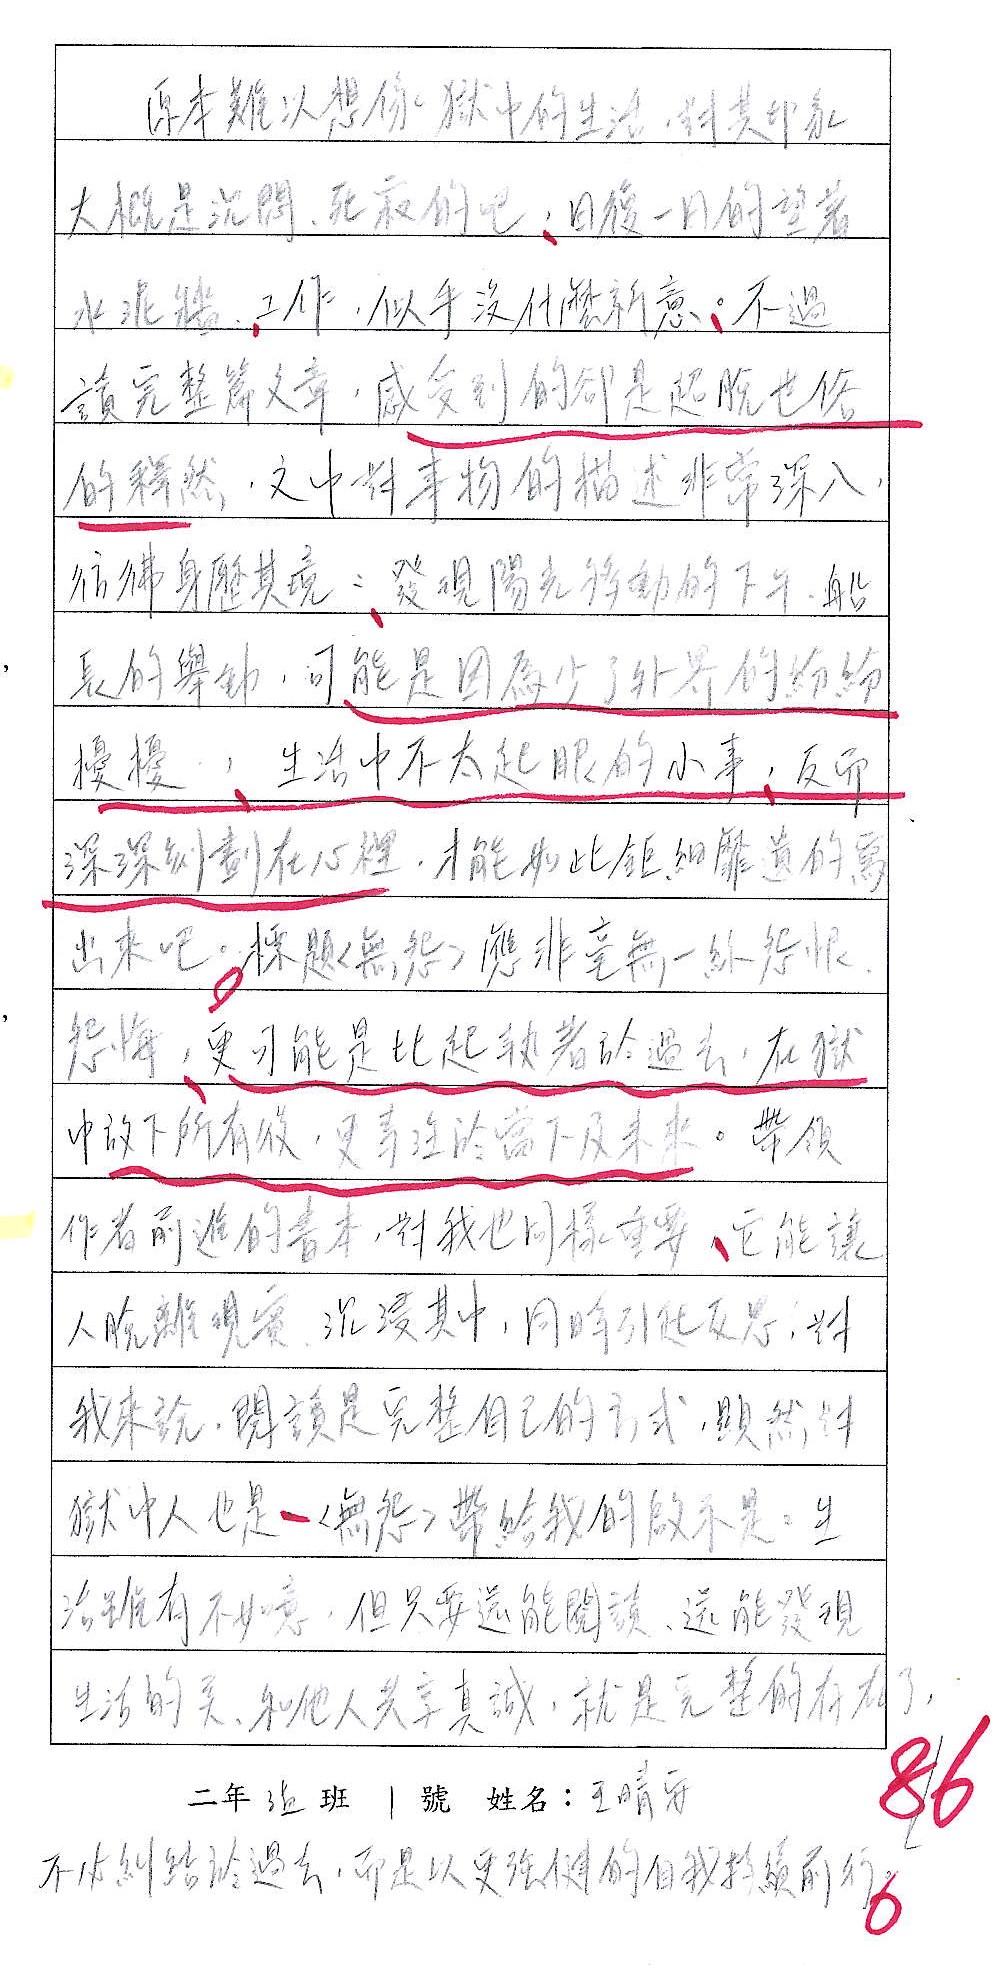 原本難以想像獄中的生活，對其印象
大概是沉悶、死寂的吧，日復一日的望著
水泥牆、工作，似乎沒什麼新意。不過
讀完整篇文章，感受到的卻是超脫世俗
的釋然，文中對事物的描述非常深入，
彷彿身歷其境：發現陽光移動的下午、船
長的舉動，可能是因為少了外界的紛紛
擾擾，生活中不太起眼的小事，反而
深深刻劃在心裡，才能如此鉅細靡遺的寫
出來吧。標題〈無怨〉應非毫無一絲怨恨、
怨悔，更可能是比起執著於過去，在獄
中放下所有後，更專注於當下及未來。帶領
作者前進的書本，對我也同樣重要，它能讓
人脫離現實、沉浸其中，同時引起反思，對
我來說，閱讀是完整自己的方式，顯然對
獄中人也是。〈無怨〉帶給我的啟示是：生
活雖有不如意，但只要還能閱讀、還能發現
生活的美、和他人共享真誠，就是完整的存在了，
86
二年 班 1 號 姓名：王晴
不必糾結於過去，而是以更強健的自我持續前行。